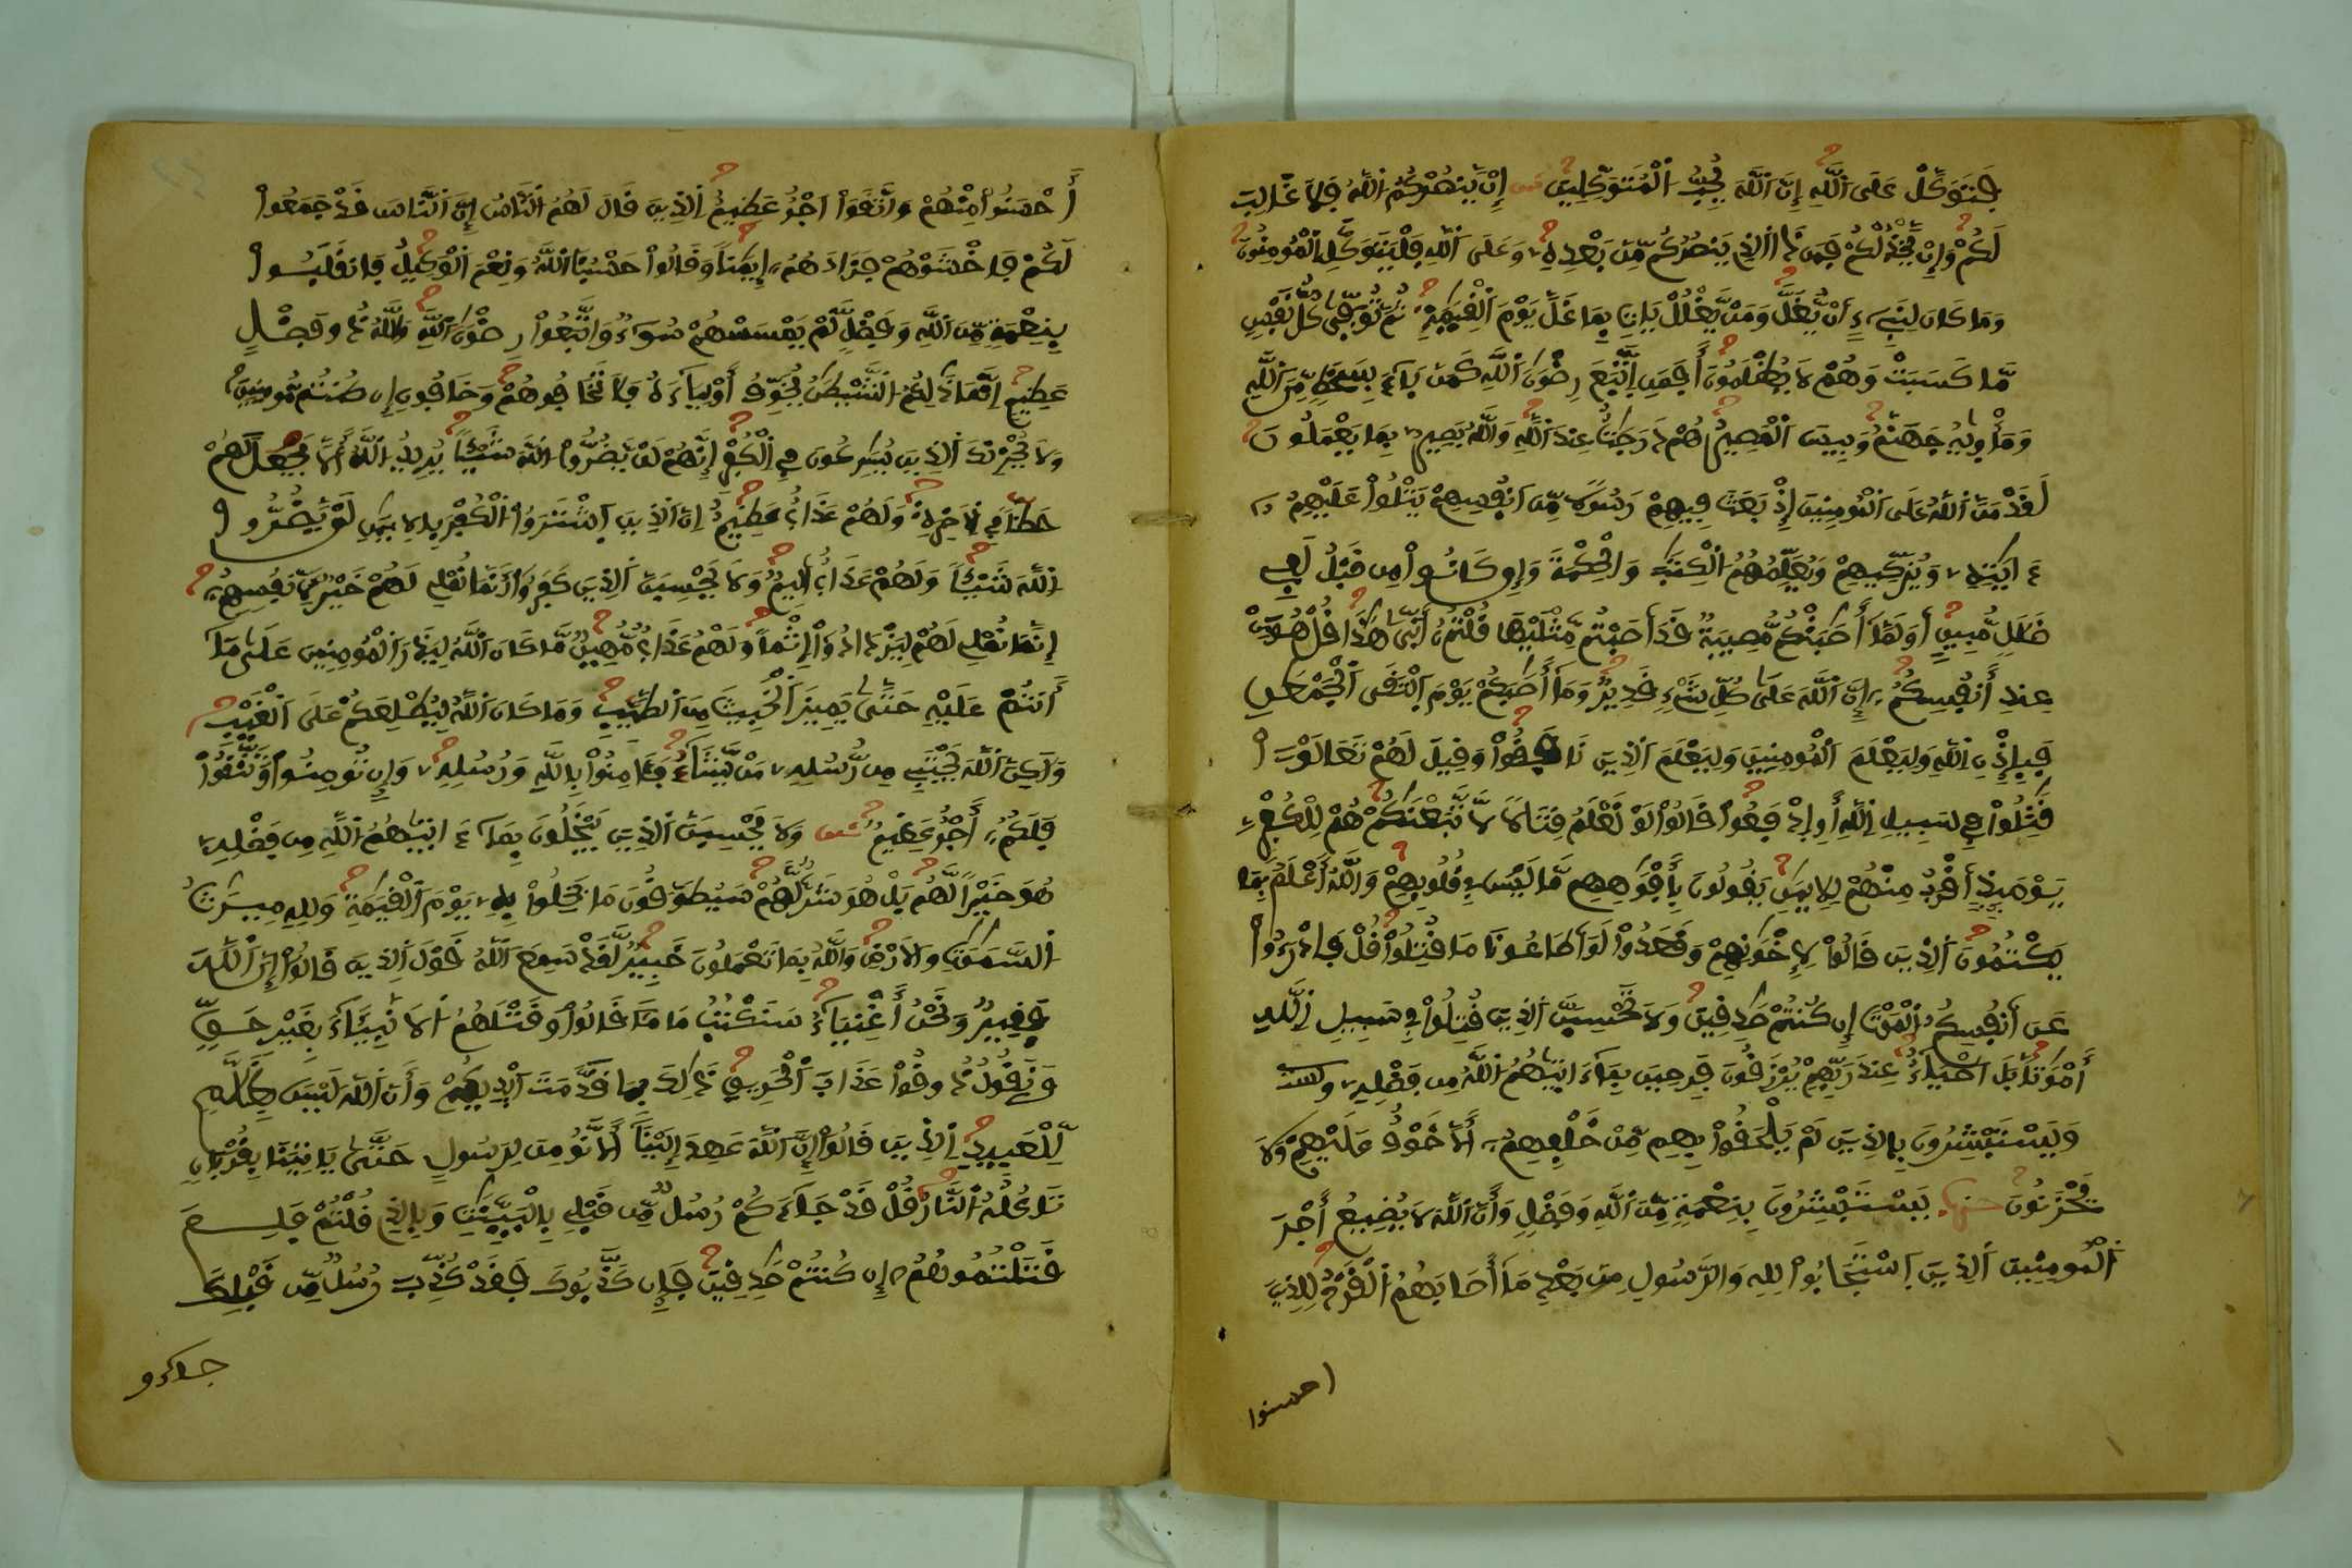 فَتَوَكَّلْ عَلَى اَللَّهِ إِنَّ اَللَّهَ يُحِبُّ اُلْمُتَوَكِّلِينَ إِنْ يَّنصُرْكُمُ اُللَّهُ فَلَا غَالِبَ
لَكُمْ وَإِنْ يَّخْذُلْكُمْ فَمَن ذَا اَلذِے يَنصُرُكُم مِّنۢ بَعْدِهِۦ وَعَلَى اَللَّهِ فَلْيَتَوَكَّلِ اِلْمُومِنُونَ
وَمَا كَانَ لِنَبِےٓءٍ أَنْ يُّغَلَّ وَمَنْ يَّغْلُلْ يَاتِ بِمَا غَلَّ يَوْمَ اَلْقِيَٰمَةِ ثُمَّ تُوَفّ۪ىٰ كُلُّ نَفْسٍ
مَّا كَسَبَتْ وَهُمْ لَا يُظْلَمُونَ أَفَمَنِ اِتَّبَعَ رِضْوَٰنَ اَللَّهِ كَمَنۢ بَآءَ بِسَخَطٍ مِّنَ اَللَّهِ
وَمَأْو۪يٰهُ جَهَنَّمُ وَبِيسَ اَلْمَصِيرُ هُمْ دَرَجَٰتٌ عِندَ اَللَّهِ وَاللَّهُ بَصِيرٌۢ بِمَا يَعْمَلُونَ
لَقَدْ مَنَّ اَللَّهُ عَلَى اَلْمُومِنِينَ إِذْ بَعَثَ فِيهِمْ رَسُولًا مِّنَ اَنفُسِهِمْ يَتْلُواْ عَلَيْهِمُۥٓ
ءَايَٰتِهِۦ وَيُزَكِّيهِمْ وَيُعَلِّمُهُمُ اُلْكِتَٰبَ وَالْحِكْمَةَ وَإِن كَانُواْ مِن قَبْلُ لَفِے
ضَلَٰلٍ مُّبِينٍ أَوَلَمَّآ أَصَٰبَتْكُم مُّصِيبَةٌ قَدَ اَصَبْتُم مِّثْلَيْهَا قُلْتُمُۥٓ أَنّ۪ىٰ هَٰذَا قُلْ هُوَ مِنْ
عِندِ أَنفُسِكُمُۥٓ إِنَّ اَللَّهَ عَلَىٰ كُلِّ شَےْءٍ قَدِيرٌ وَمَآ أَصَٰبَكُمْ يَوْمَ اَلْتَقَى اَلْجَمْعَٰنِ
فَبِإِذْنِ اِللَّهِ وَلِيَعْلَمَ اَلْمُومِنِينَ وَلِيَعْلَمَ اَلذِينَ نَافَقُواْ وَقِيلَ لَهُمْ تَعَالَوْاْ
قَٰتِلُواْ فِے سَبِيلِ اِللَّهِ أَوِ اِدْفَعُواْ قَالُواْ لَوْ نَعْلَمُ قِتَالًا لَّاتَّبَعْنَٰكُمْ هُمْ لِلْكُفْرِ
يَوْمَئِذٍ أَقْرَبُ مِنْهُمْ لِلِايمَٰنِ يَقُولُونَ بِأَفْوَٰهِهِم مَّا لَيْسَ فِے قُلُوبِهِمْ وَاللَّهُ أَعْلَمُ بِمَا
يَكْتُمُونَ اَلذِينَ قَالُواْ لِإِخْوَٰنِهِمْ وَقَعَدُواْ لَوَ اَطَاعُونَا مَا قُتِلُواْ قُلْ فَادْرَءُواْ
عَنَ اَنفُسِكُمُ اُلْمَوْتَ إِن كُنتُمْ صَٰدِقِينَ وَلَا تَحْسِبَنَّ اَلذِينَ قُتِلُواْ فِے سَبِيلِ اِللَّهِ
أَمْوَٰتًا بَلَ اَحْيَآءٌ عِندَ رَبِّهِمْ يُرْزَقُونَ فَرِحِينَ بِمَآ ءَات۪يٰهُمُ اُللَّهُ مِن فَضْلِهِۦ
وَيَسْتَبْشِرُونَ بِالذِينَ لَمْ يَلْحَقُواْ بِهِم مِّنْ خَلْفِهِمُۥٓ أَلَّا خَوْفٌ عَلَيْهِمْ وَلَا هُمْ
يَحْزَنُونَ يَسْتَبْشِرُونَ بِنِعْمَةٍ مِّنَ اَللَّهِ وَفَضْلٍ وَأَنَّ اَللَّهَ لَا يُضِيعُ أَجْرَ
اَلْمُومِنِينَ اَلذِينَ اَسْتَجَابُواْ لِلهِ وَالرَّسُولِ مِنۢ بَعْدِ مَآ أَصَابَهُمُ اُلْقَرْحُ لِلذِينَ
احسنوا
أَحْسَنُواْ مِنْهُمْ وَاتَّقَوَاْ اَجْرٌ عَظِيمٌ اِلذِينَ قَالَ لَهُمُ اُلنَّاسُ إِنَّ اَلنَّاسَ قَدْ جَمَعُواْ
لَكُمْ فَاخْشَوْهُمْ فَزَادَهُمُۥٓ إِيمَٰنًا وَقَالُواْ حَسْبُنَا اَللَّهُ وَنِعْمَ اَلْوَكِيلُ فَانقَلَبُواْ
بِنِعْمَةٍ مِّنَ اَللَّهِ وَفَضْلٍ لَّمْ يَمْسَسْهُمْ سُوٓءٌ وَاتَّبَعُواْ رِضْوَٰنَ اَللَّهِ وَاللَّهُ ذُو فَضْلٍ
عَظِيمٍ اِنَّمَا ذَٰلِكُمُ اُلشَّيْطَٰنُ يُخَوِّفُ أَوْلِيَآءَهُۥ فَلَا تَخَافُوهُمْ وَخَافُونِ إِن كُنتُم مُّومِنِينَ
وَلَا يُحْزِنكَ اَلذِينَ يُسَٰرِعُونَ فِے اِلْكُفْرِ إِنَّهُمْ لَنْ يَّضُرُّواْ اُللَّهَ شَيْـًٔا يُرِيدُ اُللَّهُ أَلَّا يَجْعَلَ لَهُمْ
حَظًّا فِے اِلَاخِرَةِ وَلَهُمْ عَذَابٌ عَظِيمٌ اِنَّ اَلذِينَ اَشْتَرَوُاْ اُلْكُفْرَ بِالِايمَٰنِ لَنْ يَّضُرُّواْ
اُللَّهَ شَيْـًٔا وَلَهُمْ عَذَابٌ اَلِيمٌ وَلَا يَحْسِبَنَّ اَلذِينَ كَفَرُوٓاْ أَنَّمَا نُمْلِے لَهُمْ خَيْرٌ لِّأَنفُسِهِمُۥٓ
إِنَّمَا نُمْلِے لَهُمْ لِيَزْدَادُوٓاْ إِثْمًا وَلَهُمْ عَذَابٌ مُّهِينٌ مَّا كَانَ اَللَّهُ لِيَذَرَ اَلْمُومِنِينَ عَلَىٰ مَآ
أَنتُمْ عَلَيْهِ حَتَّىٰ يَمِيزَ اَلْخَبِيثَ مِنَ اَلطَّيِّبِ وَمَا كَانَ اَللَّهُ لِيُطْلِعَكُمْ عَلَى اَلْغَيْبِ
وَلَٰكِنَّ اَللَّهَ يَجْتَبِے مِن رُّسُلِهِۦ مَنْ يَّشَآءُ فَـَٔامِنُواْ بِاللَّهِ وَرُسُلِهِۦ وَإِن تُومِنُواْ وَتَتَّقُواْ
فَلَكُمُۥٓ أَجْرٌ عَظِيمٌ وَلَا يَحْسِبَنَّ اَلذِينَ يَبْخَلُونَ بِمَآ ءَات۪يٰهُمُ اُللَّهُ مِن فَضْلِهِۦ
هُوَ خَيْرًا لَّهُم بَلْ هُوَ شَرٌّ لَّهُمْ سَيُطَوَّقُونَ مَا بَخِلُواْ بِهِۦ يَوْمَ اَلْقِيَٰمَةِ وَلِلهِ مِيرَٰثُ
اُلسَّمَٰوَٰتِ وَالَارْضِ وَاللَّهُ بِمَا تَعْمَلُونَ خَبِيرٌ لَّقَدْ سَمِعَ اَللَّهُ قَوْلَ اَلذِينَ قَالُوٓاْ إِنَّ اَللَّهَ
فَقِيرٌ وَنَحْنُ أَغْنِيَآءُ سَنَكْتُبُ مَا قَالُواْ وَقَتْلَهُمُ اُلَانۢبِئَآءَ بِغَيْرِ حَقٍّ
وَنَقُولُ ذُوقُواْ عَذَابَ اَلْحَرِيقِ ذَٰلِكَ بِمَا قَدَّمَتَ اَيْدِيكُمْ وَأَنَّ اَللَّهَ لَيْسَ بِظَلَّٰمٍ
لِّلْعَبِيدِ اِلذِينَ قَالُوٓاْ إِنَّ اَللَّهَ عَهِدَ إِلَيْنَآ أَلَّا نُومِنَ لِرَسُولٍ حَتَّىٰ يَاتِيَنَا بِقُرْبَانٍ
تَاكُلُهُ اُلنَّارُ قُلْ قَدْ جَآءَكُمْ رُسُلٌ مِّن قَبْلِے بِالْبَيِّنَٰتِ وَبِالذِے قُلْتُمْ فَلِمَ
قَتَلْتُمُوهُمُۥٓ إِن كُنتُمْ صَٰدِقِينَ فَإِن كَذَّبُوكَ فَقَدْ كُذِّبَ رُسُلٌ مِّن قَبْلِكَ
جاءو